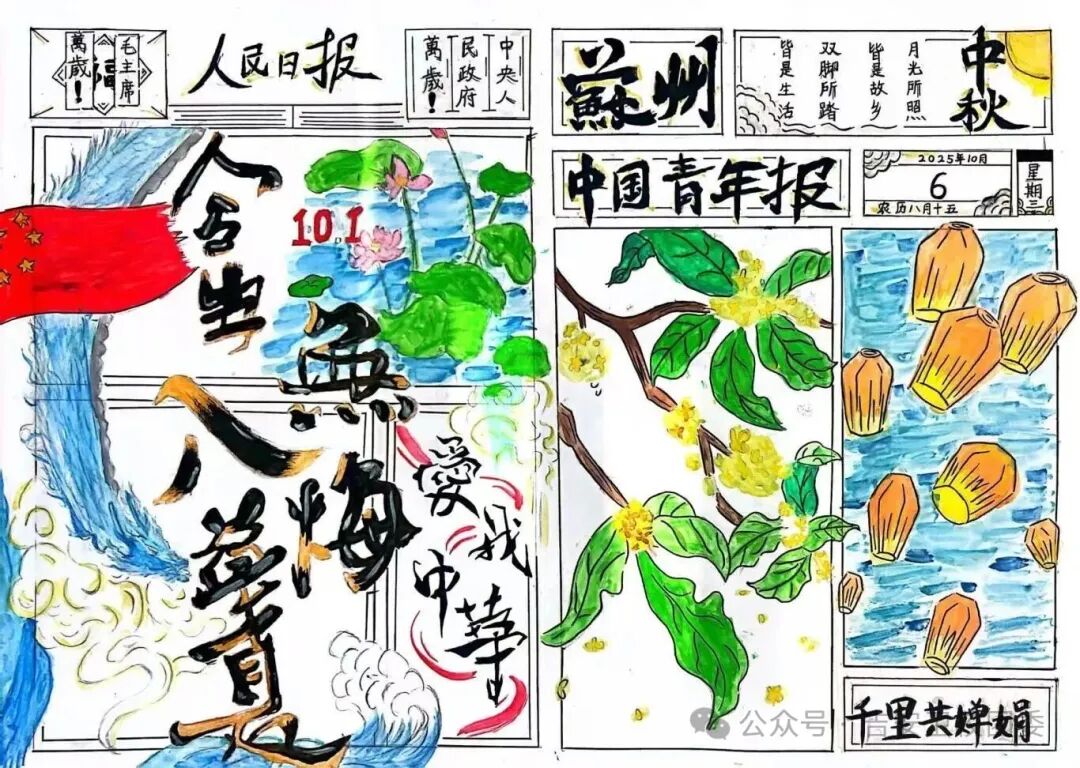 毛主席
萬歲！
福
人民日报
中央人
民政府
萬歲！
今生
無悔
入華夏
10.1
愛我
中華
蘇州
中秋
月光所照
皆是故乡
双脚所踏
皆是生活
中国青年报
2025年10月
6
农历八月十五
星期三
千里共婵娟
公众号